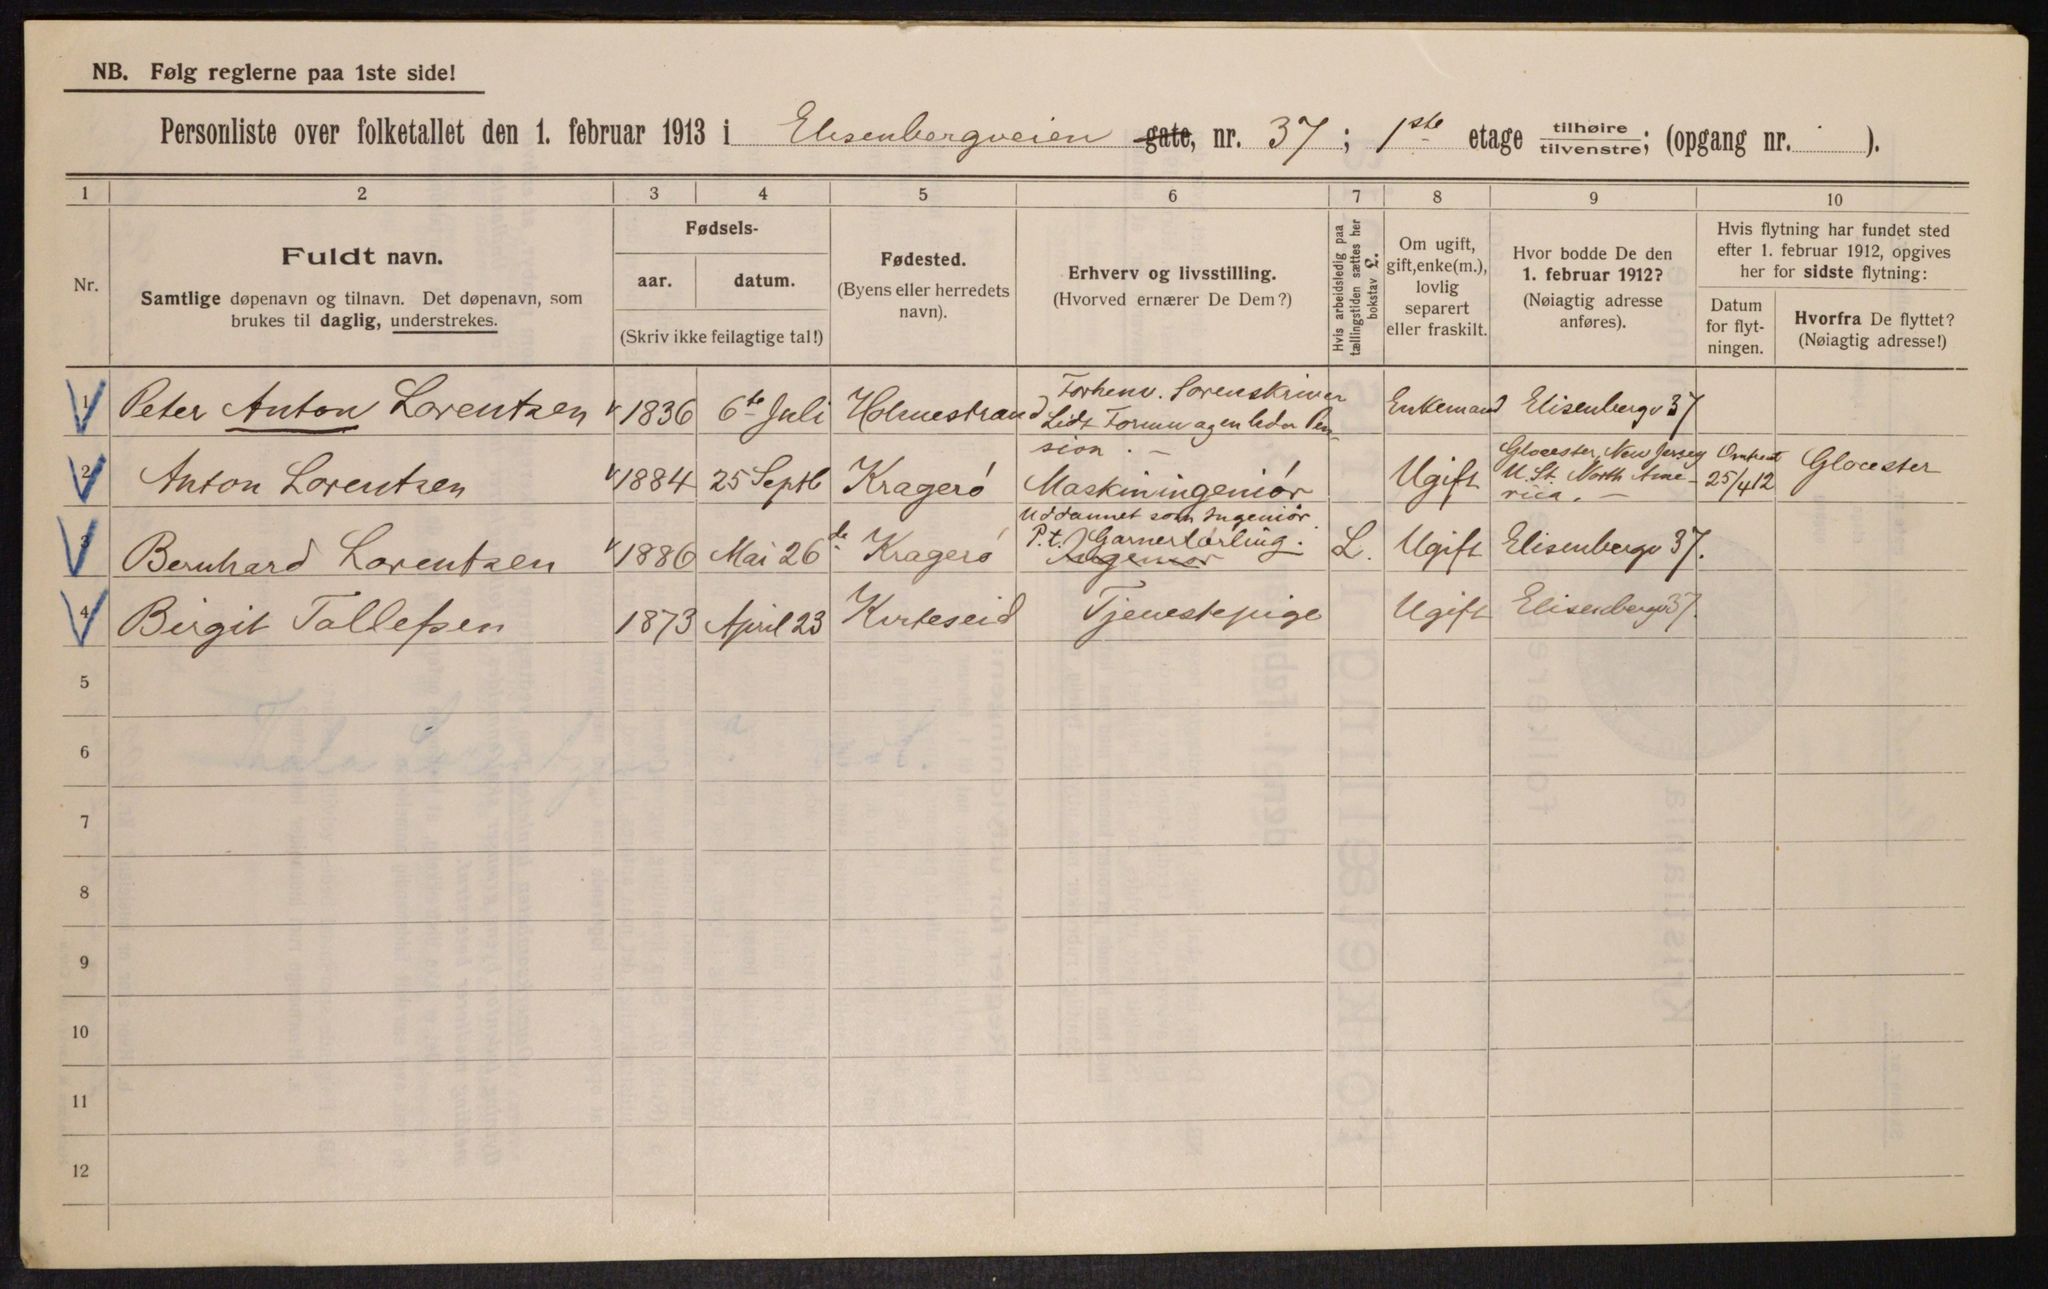 NB. Følg reglerne paa 1ste side!
Personliste over folketallet den 1. februar 1913 i Elisenbergveien gate, nr. 37; 1ste etage tilhøire tilvenstre; (opgang nr. ).
1 2 3 4 5 6 7 8 9 10
Nr.
Fuldt navn.
Samtlige døpenavn og tilnavn. Det døpenavn, som
brukes til daglig, understrekes.
Fødsels-
aar. datum.
(Skriv ikke feilagtige tal!)
Fødested.
(Byens eller herredets
navn).
Erhverv og livsstilling.
(Hvorved ernærer De Dem?)
Hvis arbeidsledig paa
tællingstiden sættes her
bokstav L.
Om ugift,
gift, enke(m.),
lovlig
separert
eller fraskilt.
Hvor bodde De den
1. februar 1912?
(Nøiagtig adresse
anføres).
Hvis flytning har fundet sted
efter 1. februar 1912, opgives
her for sidste flytning:
Datum
for flyt-
ningen.
Hvorfra De flyttet?
(Nøiagtig adresse!)
1 Peter Anton Lorentzen 1836 6te Juli Holmestrand Forhenv. Sorenskriver
Lidt Formu Pen-
sion. — Enkemand Elisenbergv 37
2 Anton Lorentzen 1884 25 Septb Kragerø Maskiningeniør Ugift Glocester, New Jersey
U. St. North Ame-
rica. — Omtrent
25/4 12 Glocester
3 Bernhard Lorentzen 1886 Mai 26de Kragerø Uddannet som Ingeniør.
P.t. Garnerlærling.
Ingeniør L. Ugift Elisenbergv 37.
4 Birgit Tollefsen 1873 April 23 Kviteseid Tjenestepige Ugift Elisenbergv 37.
5
6
7
8
9
10
11
12